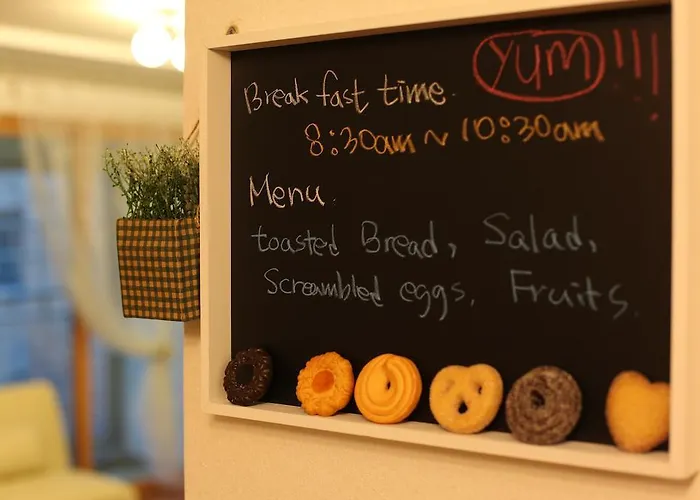 YUM!!!
Break fast time.
8:30am ~ 10:30am
Menu.
toasted Bread, Salad,
Screambled eggs, Fruits.